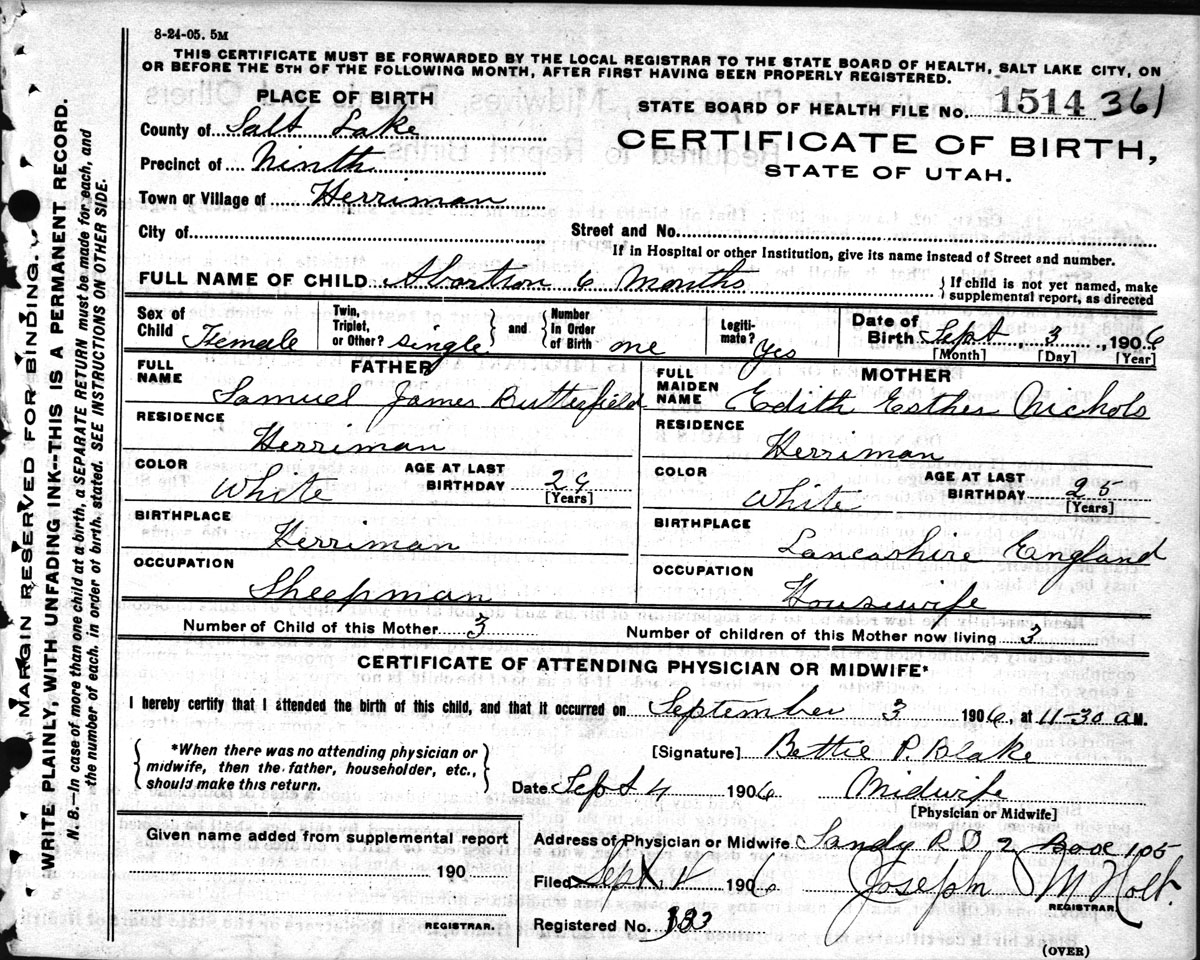 8-24-05. 5M
THIS CERTIFICATE MUST BE FORWARDED BY THE LOCAL REGISTRAR TO THE STATE BOARD OF HEALTH, SALT LAKE CITY, ON
OR BEFORE THE 5TH OF THE FOLLOWING MONTH, AFTER FIRST HAVING BEEN PROPERLY REGISTERED.
PLACE OF BIRTH
County of Salt Lake
Precinct of Ninth
Town or Village of Herriman
City of
STATE BOARD OF HEALTH FILE NO. 1514 361
CERTIFICATE OF BIRTH,
STATE OF UTAH.
Street and No.
If in Hospital or other Institution, give its name instead of Street and number.
FULL NAME OF CHILD Abortion 6 Months
If child is not yet named, make
supplemental report, as directed
Sex of Child Female
Twin, Triplet, or Other? single
and Number In Order of Birth one
Legiti-mate? Yes
Date of Birth Sept 3, 1906
[Month] [Day] [Year]
FATHER
FULL NAME Samuel James Butterfield
RESIDENCE Herriman
COLOR White
AGE AT LAST BIRTHDAY 29
[Years]
BIRTHPLACE Herriman
OCCUPATION Sheepman
MOTHER
FULL MAIDEN NAME Edith Esther Nichols
RESIDENCE Herriman
COLOR White
AGE AT LAST BIRTHDAY 25
[Years]
BIRTHPLACE Lancashire England
OCCUPATION Housewife
Number of Child of this Mother 3
Number of children of this Mother now living 3
CERTIFICATE OF ATTENDING PHYSICIAN OR MIDWIFE*
I hereby certify that I attended the birth of this child, and that it occurred on September 3 1906, at 11-30 a M.
*When there was no attending physician or
midwife, then the father, householder, etc.,
should make this return.
[Signature] Bettie P. Blake
Date Sept 4 1906 Midwife
[Physician or Midwife]
Given name added from supplemental report
190
REGISTRAR.
Address of Physician or Midwife Sandy R D 2 Box 105
Filed Sept. 4 1906 Joseph M Holt.
REGISTRAR.
Registered No. 133
(OVER)
MARGIN RESERVED FOR BINDING.
WRITE PLAINLY, WITH UNFADING INK--THIS IS A PERMANENT RECORD.
N. B.—In case of more than one child at a birth, a SEPARATE RETURN must be made for each, and
the number of each, in order of birth, stated. SEE INSTRUCTIONS ON OTHER SIDE.